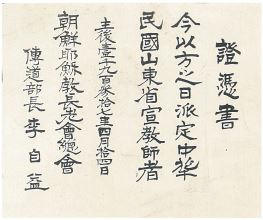 證憑書
今以方之日派定中華
民國山東省宣教師者
主後壹千九百參拾七年四月拾四日
朝鮮耶穌教長老會總會
傳道部長 李自益